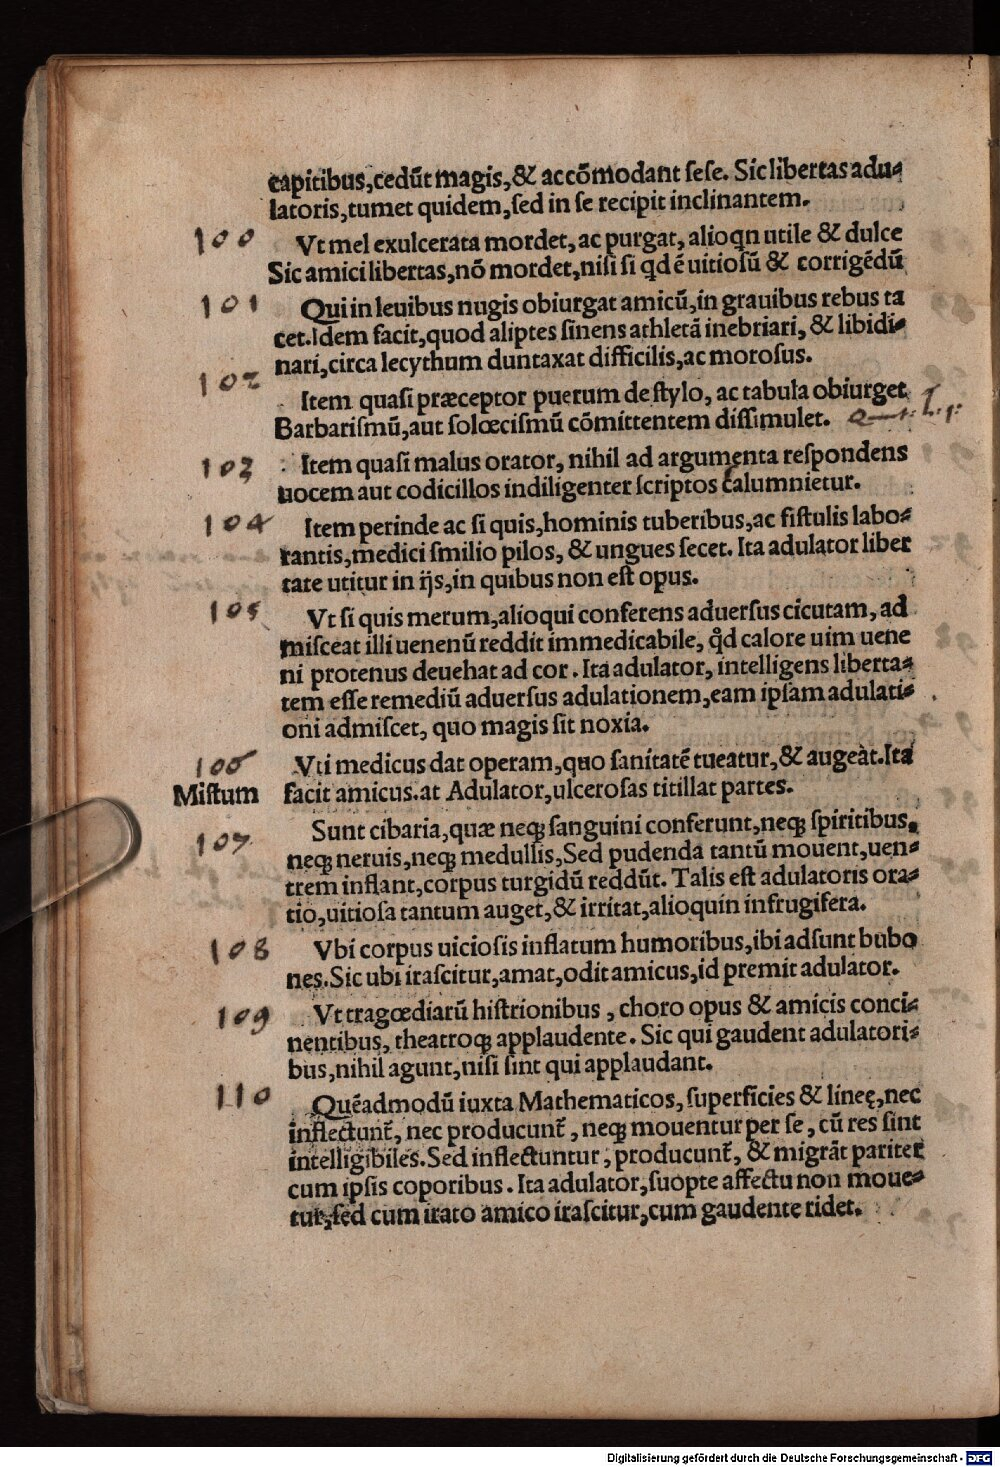 capitibus,cedūt magis,& accōmodant ſeſe. Sic libertas adu⸗
latoris,tumet quidem,ſed in ſe recipit inclinantem.
100 Vt mel exulcerata mordet, ac purgat, alioqn utile & dulce
Sic amici libertas,nō mordet,niſi ſi qd ē uitioſū & corrigēdū
101 Qui in leuibus nugis obiurgat amicū,in grauibus rebus ta
cet.Idem facit,quod aliptes ſinens athletā inebriari, & libidi⸗
nari,circa lecythum duntaxat difficilis,ac moroſus.
102 Item quaſi præceptor puerum de ſtylo, ac tabula obiurget
Barbariſmū,aut ſolœciſmū cōmittentem diſſimulet.
103 Item quaſi malus orator, nihil ad argumenta reſpondens
uocem aut codicillos indiligenter ſcriptos calumnietur.
104 Item perinde ac ſi quis,hominis tuberibus,ac fiſtulis labo⸗
rantis,medici ſmilio pilos, & ungues ſecet. Ita adulator liber
tate utitur in ijs,in quibus non eſt opus.
105 Vt ſi quis merum,alioqui conferens aduerſus cicutam, ad
miſceat illi uenenū reddit immedicabile, qd calore uim uene
ni protenus deuehat ad cor. Ita adulator, intelligens liberta⸗
tem eſſe remediū aduerſus adulationem,eam ipſam adulati⸗
oni admiſcet, quo magis ſit noxia.
106 Vti medicus dat operam,quo ſanitatē tueatur,& augeat.Ita
Miſtum facit amicus.at Adulator,ulceroſas titillat partes.
107 Sunt cibaria,quæ neqꝫ ſanguini conferunt,neqꝫ ſpiritibus,
neqꝫ neruis,neqꝫ medullis,Sed pudenda tantū mouent,uen⸗
trem inflant,corpus turgidū reddūt. Talis eſt adulatoris ora⸗
tio,uitioſa tantum auget,& irritat,alioquin infrugifera.
108 Vbi corpus uicioſis inflatum humoribus,ibi adſunt bubo
nes.Sic ubi iraſcitur,amat,odit amicus,id premit adulator.
109 Vt tragœdiarū hiſtrionibus, choro opus & amicis conci⸗
nentibus, theatroqꝫ applaudente. Sic qui gaudent adulatori⸗
bus,nihil agunt,niſi ſint qui applaudant.
110 Quēadmodū iuxta Mathematicos, ſuperficies & lineę,nec
inflectunt᷑, nec producunt᷑, neqꝫ mouentur per ſe, cū res ſint
intelligibiles.Sed inflectuntur, producunt᷑, & migrāt pariter
cum ipſis coporibus. Ita adulator,ſuopte affectu non moue⸗
tur,ſed cum irato amico iraſcitur,cum gaudente ridet.
Digitalisierung gefördert durch die Deutsche Forschungsgemeinschaft - DFG